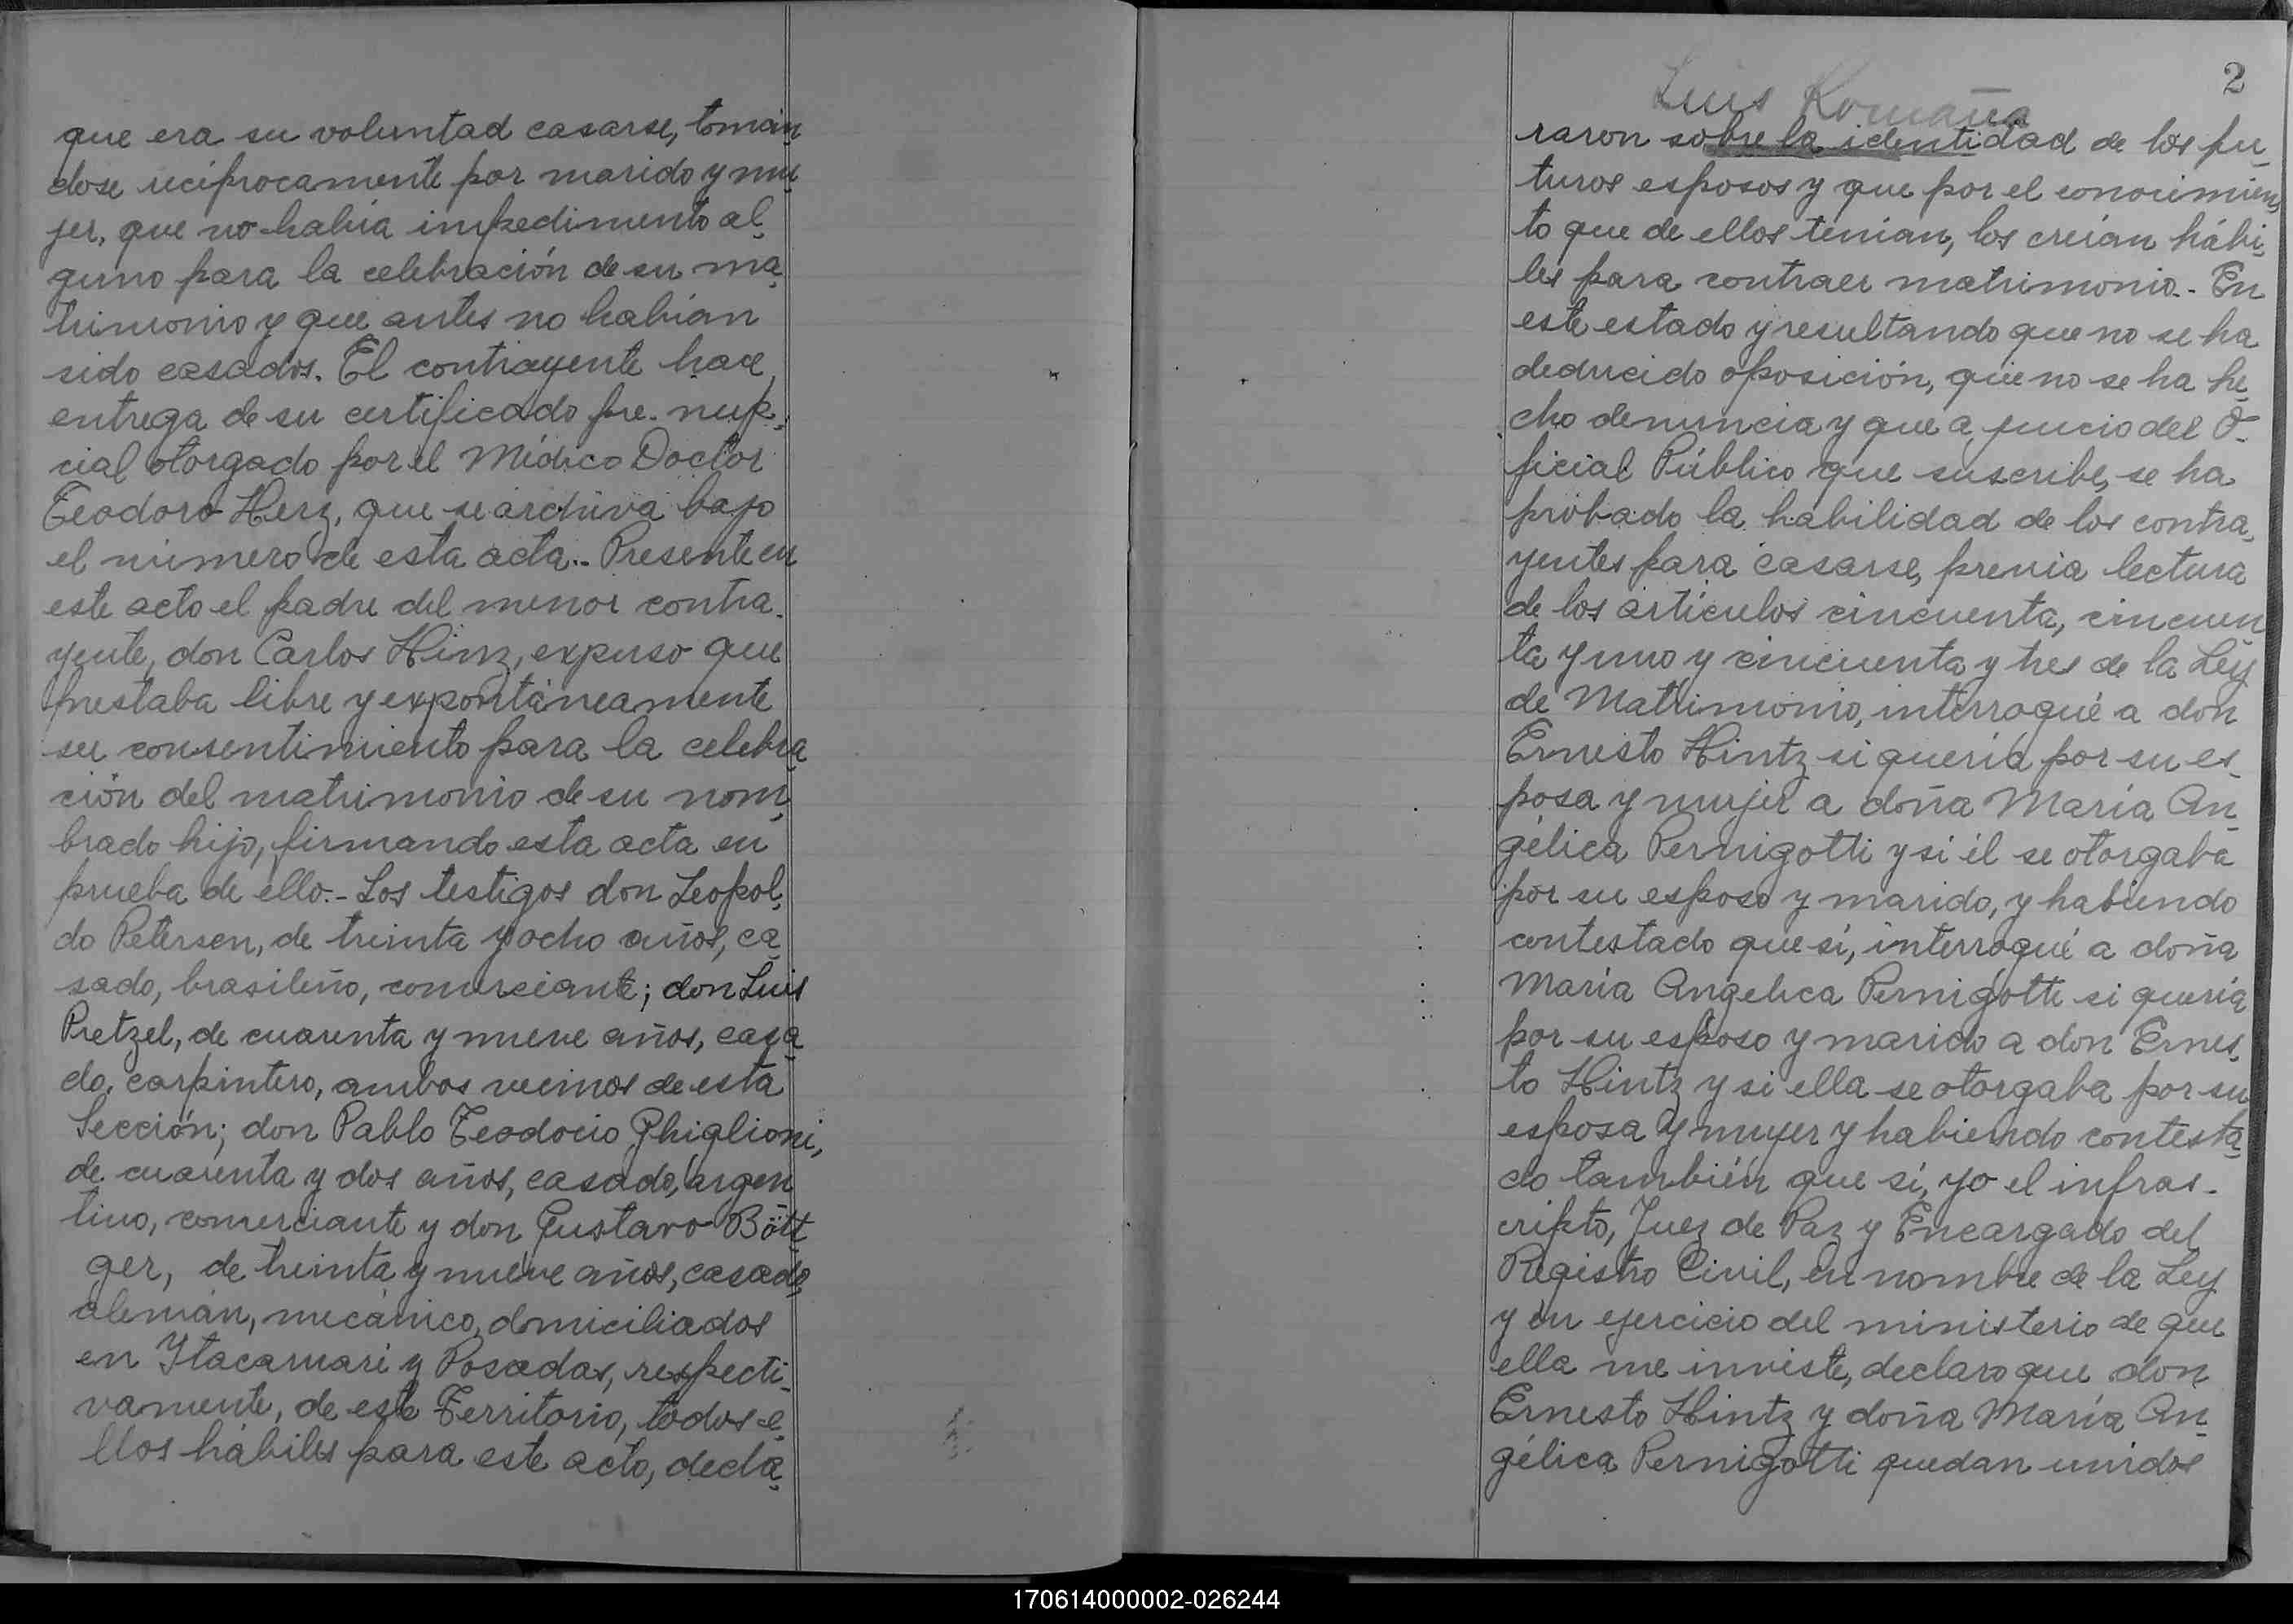 que era su voluntad casarse, tomán
dose recíprocamente por marido y mu
jer, que no había impedimento al
guno para la celebración de su ma
trimonio y que antes no habían
sido casados. El contrayente hace
entrega de su certificado pre-nup-
cial otorgado por el Médico Doctor
Teodoro Herz, que se archiva bajo
el número de esta acta.- Presente en
este acto el padre del menor contra-
yente, don Carlos Hinz, expuso que
prestaba libre y expontáneamente
su consentimiento para la celebra
ción del matrimonio de su nom
brado hijo, firmando esta acta en
prueba de ello.- Los testigos don Leopol
do Petersen, de treinta y ocho años, ca
sado, brasileño, comerciante; don Luis
Pretzel, de cuarenta y nueve años, casa
do, carpintero, ambos vecinos de esta
Sección; don Pablo Teodocio Ghiglioni,
de cuarenta y dos años, casado, argen
tino, comerciante y don Gustavo Bött
ger, de treinta y nueve años, casado,
alemán, mecánico, domiciliados
en Itacaruaré y Posadas, respecti-
vamente, de este Territorio, todos e
llos hábiles para este acto, decla
2
Luis Romaña
raron sobre la identidad de los fu
turos esposos y que por el conocimien
to que de ellos tenían, los creían hábi
les para contraer matrimonio.- En
este estado y resultando que no se ha
deducido oposición, que no se ha he
cho denuncia y que a juicio del O-
ficial Público que suscribe, se ha
probado la habilidad de los contra
yentes para casarse, previa lectura
de los artículos cincuenta, cincuen
ta y uno y cincuenta y tres de la Ley
de Matrimonio, interrogué a don
Ernesto Hintz si quería por su es-
posa y mujer a doña María An
gélica Pernigotti y si él se otorgaba
por su esposo y marido, y habiendo
contestado que sí, interrogué a doña
María Angelica Pernigotti si quería
por su esposo y marido a don Ernes
to Hintz y si ella se otorgaba por su
esposa y muyer y habiendo contesta
do también que sí, yo el infras-
cripto, Juez de Paz y Encargado del
Registro Civil, en nombre de la Ley
y en ejercicio del ministerio de que
ella me inviste, declaro que don
Ernesto Hintz y doña María An
gélica Pernigotti quedan unidos
170614000002-026244